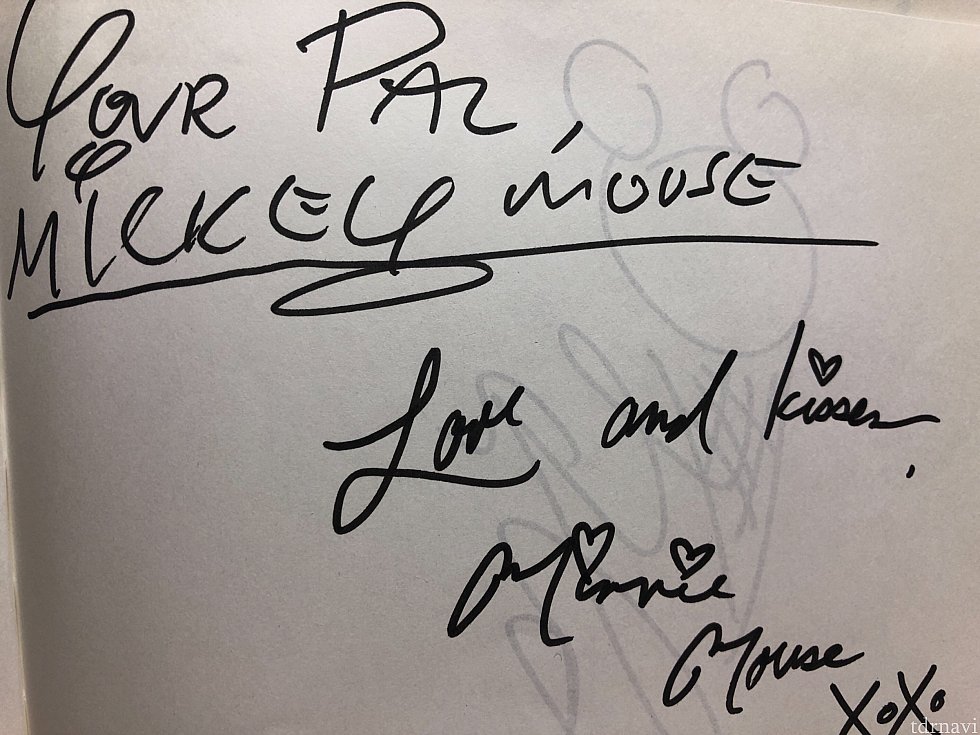 Your PAL,
MICKEY MOUSE
Love and kisses,
Minnie
Mouse
XoXo
tdrnavi